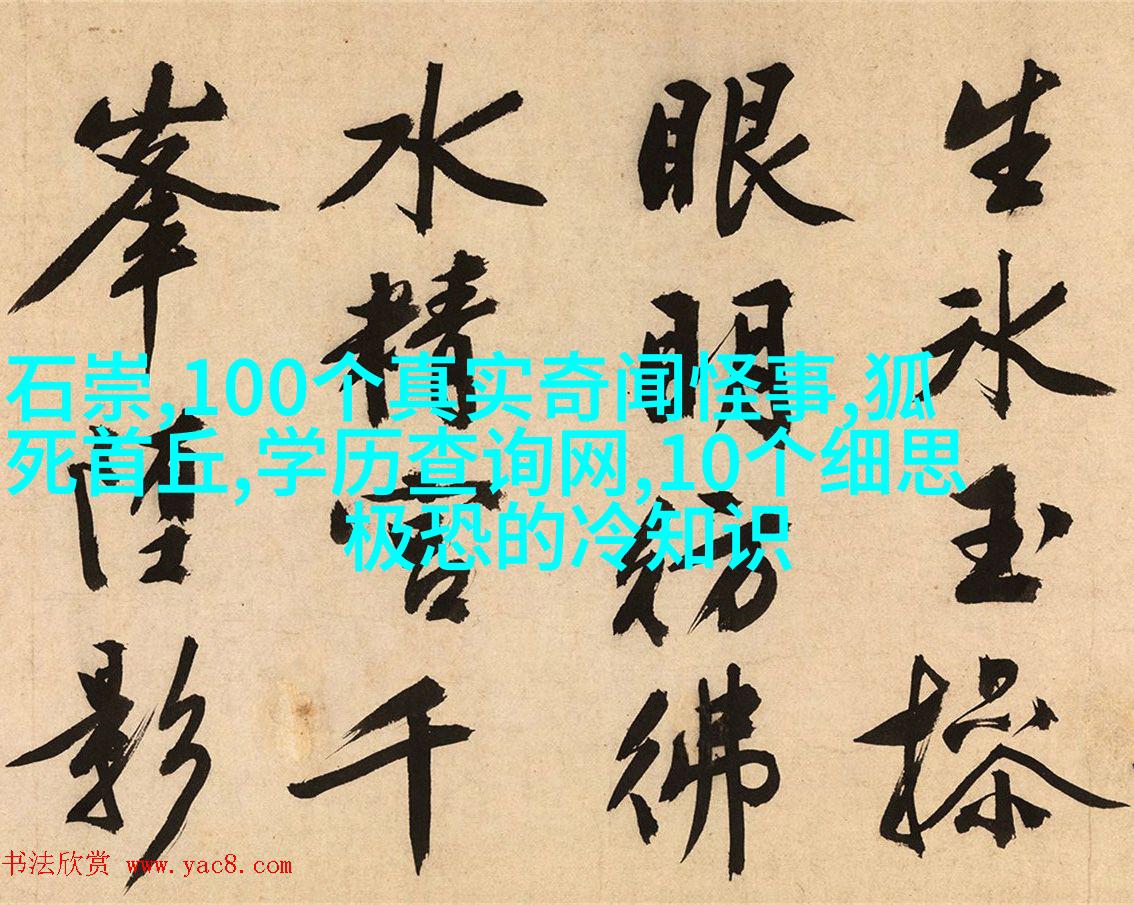 生氷玉操
眼明彷彿
水精宮千
峯堕影
石崇,100个真实奇闻怪事,狐
死首丘,学历查询网,10个细思
极恐的冷知识
书法欣赏 www.yac8.com